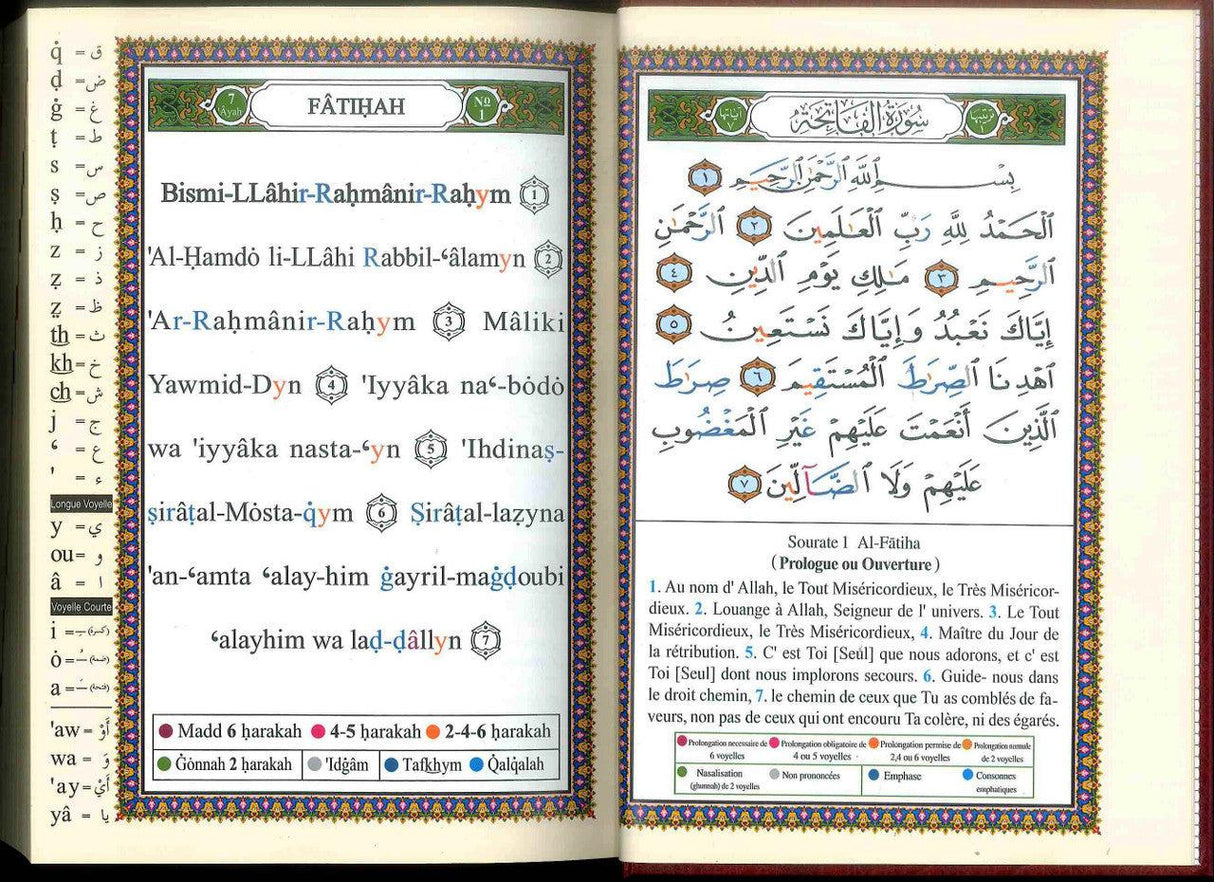 q̇ = ق
ḍ = ض
ġ = غ
ṭ = ط
s = س
ṣ = ص
ḥ = ح
z = ز
ẓ = ذ
ẓ = ظ
th = ث
kh = خ
ch = ش
j = ج
‘ = ع
' = ء
Longue Voyelle
y = ي
ou = و
â = ا
Voyelle Courte
i = ـِ (كسرة)
ȯ = ـُ (ضمة)
a = ـَ (فتحة)
'aw = أَوْ
wa = وَ
'ay = أَيْ
yâ = يا
7 Âyah
FÂTIḤAH
No 1
Bismi-LLâhir-Raḥmânir-Raḥym 1
'Al-Ḥamdȯ li-LLâhi Rabbil-‘âlamyn 2
'Ar-Raḥmânir-Raḥym 3 Mâliki
Yawmid-Dyn 4 'Iyyâka na‘-bȯdȯ
wa 'iyyâka nasta-‘yn 5 'Ihdinaṣ-
ṣirâṭal-Mȯsta-q̇ym 6 Ṣirâṭal-laẓyna
'an-‘amta ‘alay-him ġayril-maġḍoubi
‘alayhim wa laḍ-ḍâllyn 7
Madd 6 ḥarakah 4-5 ḥarakah 2-4-6 ḥarakah
Ġȯnnah 2 ḥarakah 'Idġâm Tafkhym Q̇alq̇alah
ترتيبها ١
سُورَةُ الفَاتِحَة
آياتها ٧
بِسْمِ ٱللَّهِ ٱلرَّحْمَٰنِ ٱلرَّحِيمِ ١
ٱلْحَمْدُ لِلَّهِ رَبِّ ٱلْعَٰلَمِينَ ٢ ٱلرَّحْمَٰنِ
ٱلرَّحِيمِ ٣ مَٰلِكِ يَوْمِ ٱلدِّينِ ٤
إِيَّاكَ نَعْبُدُ وَإِيَّاكَ نَسْتَعِينُ ٥
ٱهْدِنَا ٱلصِّرَٰطَ ٱلْمُسْتَقِيمَ ٦ صِرَٰطَ
ٱلَّذِينَ أَنْعَمْتَ عَلَيْهِمْ غَيْرِ ٱلْمَغْضُوبِ
عَلَيْهِمْ وَلَا ٱلضَّآلِّينَ ٧
Sourate 1 Al-Fātiha
(Prologue ou Ouverture)
1. Au nom d' Allah, le Tout Miséricordieux, le Très Miséricor-
dieux. 2. Louange à Allah, Seigneur de l' univers. 3. Le Tout
Miséricordieux, le Très Miséricordieux, 4. Maître du Jour de
la rétribution. 5. C' est Toi [Seul] que nous adorons, et c' est
Toi [Seul] dont nous implorons secours. 6. Guide- nous dans
le droit chemin, 7. le chemin de ceux que Tu as comblés de fa-
veurs, non pas de ceux qui ont encouru Ta colère, ni des égarés.
Prolongation necessaire de 6 voyelles
Prolongation obligatoire de 4 ou 5 voyelles
Prolongation permise de 2,4 ou 6 voyelles
Prolongation normale de 2 voyelles
Nasalisation (ghunnah) de 2 voyelles
Non prononcées
Emphase
Consonnes emphatiques